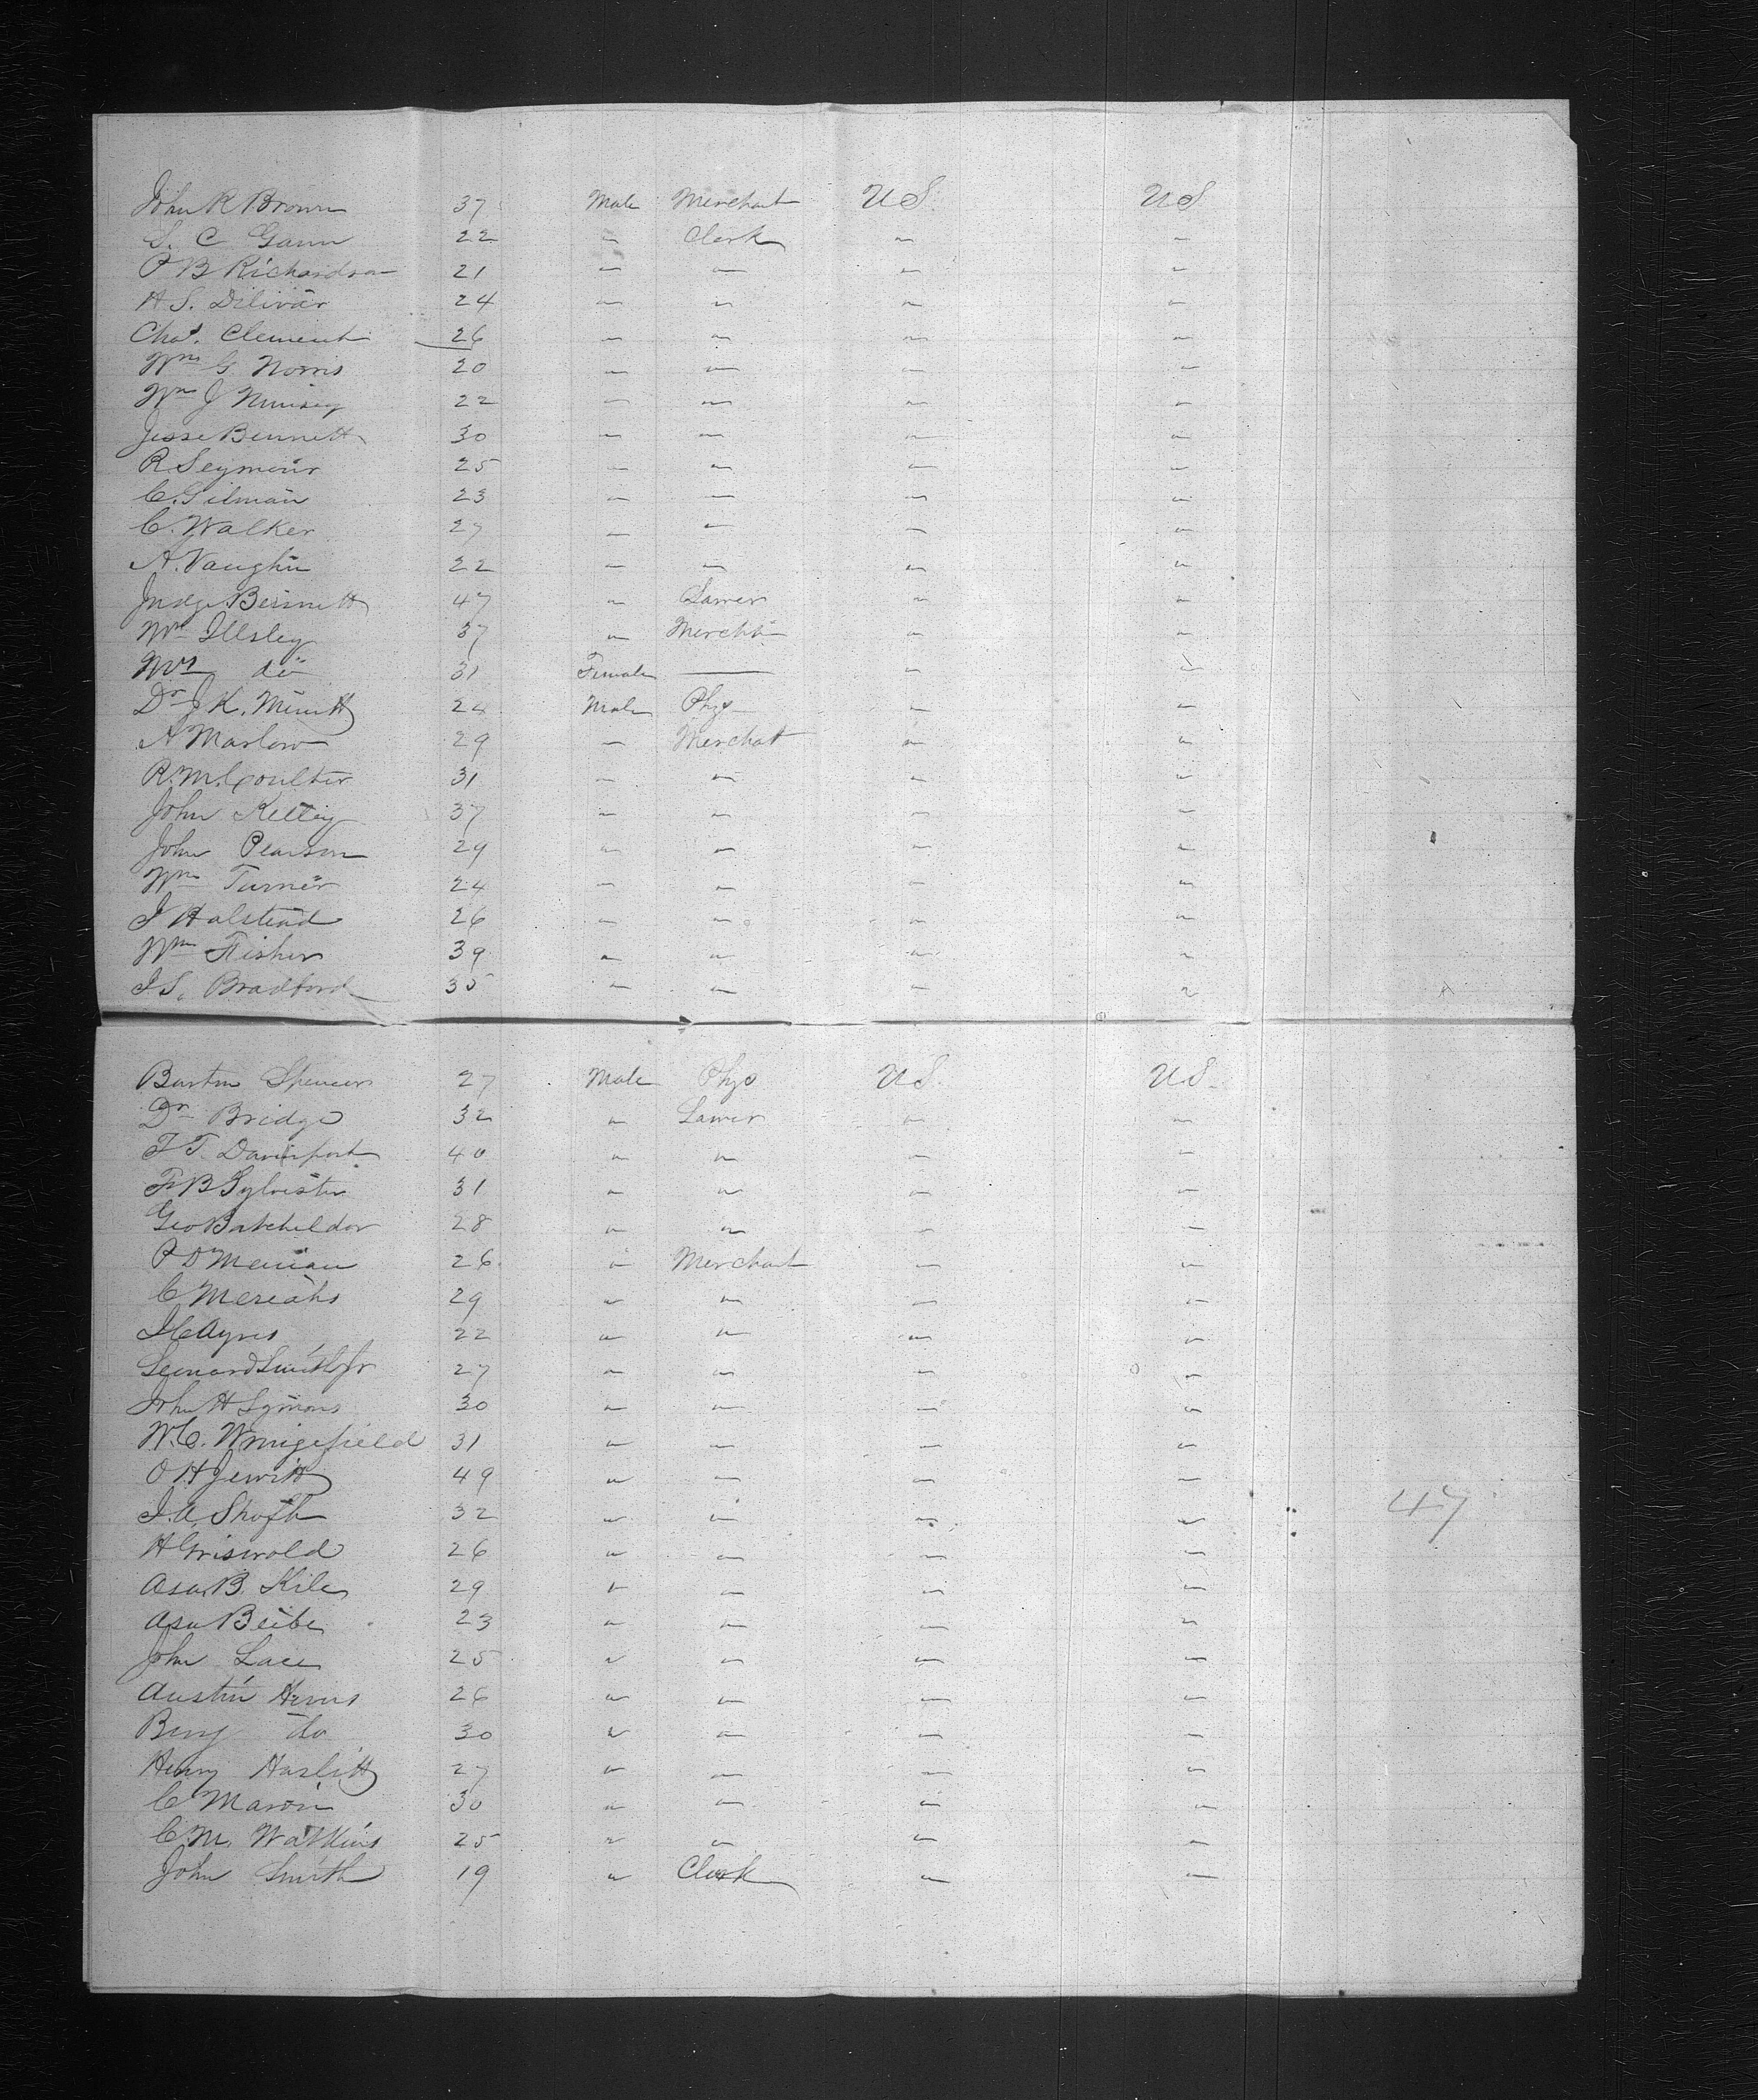 John R Brown 37 Male Merchant U S. U S
S. C Gann 22 " Clerk " "
P B Richardson 21 " " " "
H. S. Dilivar 24 " " " "
Chas. Clement 26 " " " "
Wm G Norris 20 " " " "
Wm J 22 " " " "
Jesse Bennett 30 " " " "
R Seymour 25 " " " "
C. Gilman 23 " " " "
C. Walker 27 " " " "
A. Vaughn 22 " " " "
Judge Bennett 47 " Lawer " "
Wm Illsley 37 " Mercht " "
Mrs do 31 Female — " "
Dr J K. 24 Male Phys " "
A Marlow 29 " Merchat " "
R. M. Coulter 31 " " " "
John Kelley 37 " " " "
John Pearson 29 " " " "
Wm Turner 24 " " " "
J Halstead 26 " " " "
Wm Fisher 39 " " " "
J S. Bradford 35 " " " "
Burton Spencer 27 Male Phys U S. U S.
Dr Bridge 32 " Lawer " "
F T. Davenport 40 " " " "
F B Sylvester 31 " " " "
Geo Batcheldor 28 " " " "
P D 26 " Merchant " "
C 29 " " " "
J C Ayres 22 " " " "
Leonard Smith Jr 27 " " " "
John H Symons 30 " " " "
W. C. Wringefield 31 " " " "
O H Jewitt 49 " " " "
J. A. 32 " " " " 47
H Griswold 26 " " " "
Asa B. Kile 29 " " " "
Asa Beibe 23 " " " "
John Lace 25 " " " "
Austin 26 " " " "
Benj do 30 " " " "
Henry Haslitt 27 " " " "
C Mason 30 " " " "
C. M. Watkins 25 " " " "
John Smith 19 " Clerk " "